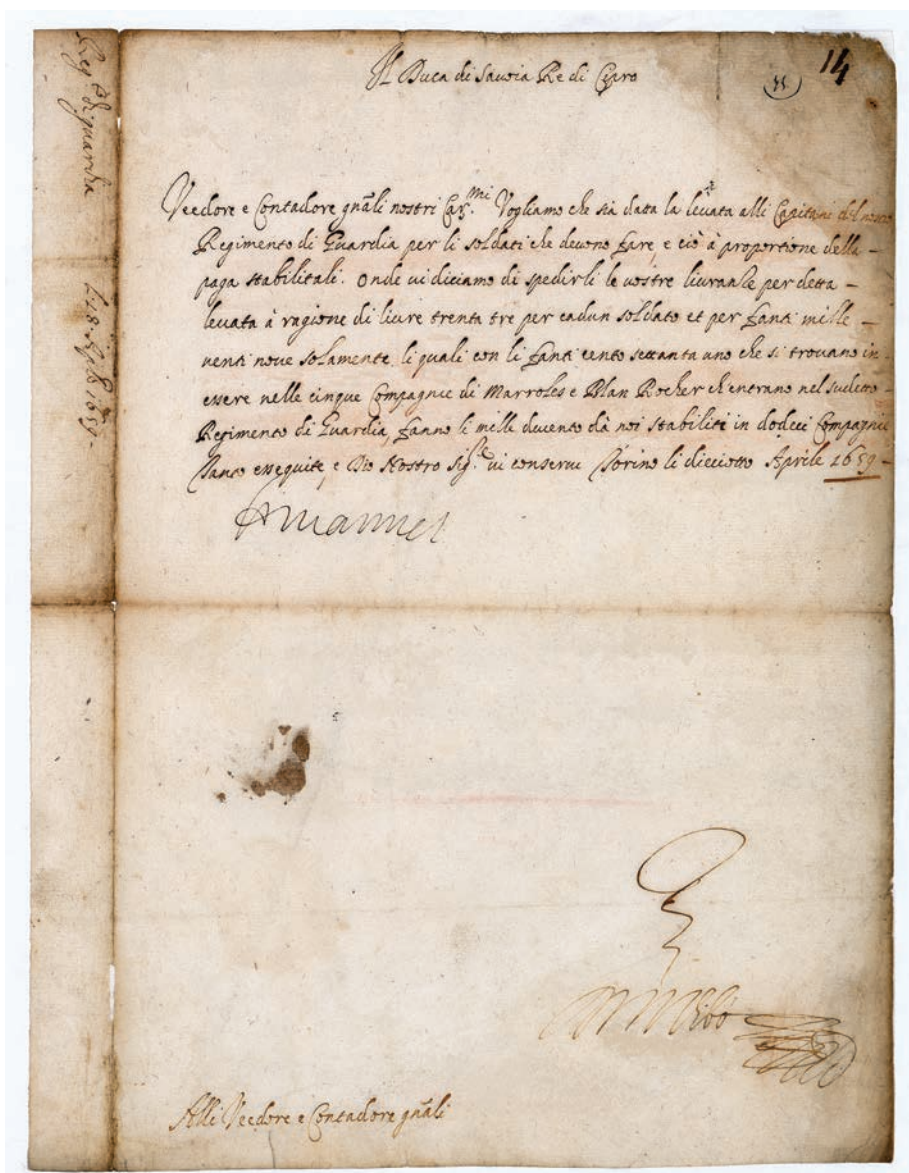 14
Il Duca di Sauoia Re di Cipro
Veedore e Contadore gnãli nostri Car.mi Vogliamo che sia data la leuata alli Capitani del nouo
Regimento di Guardia per li soldati che deuono fare, e ciò à proportione della -
paga stabilitali. Onde ui diciamo di spedirli le uostre liuranze per detta -
leuata à ragione di liure trenta tre per cadun soldato et per fanti mille -
uenti noue solamente, li quali con li fanti cento settanta uno che si trouano in -
essere nelle cinque Compagnie di Marroles e Blan Rocher ch'entrano nel sudetto -
Regimento di Guardia, fanno li mille ducento dà noi stabiliti in dodeci Compagnie
Tanto essequite, e Dio Nostro Sig.re ui conserui Torino li dicciotto Aprile 1659 -
Alli Veedore e Contadore gnãli
Reg.to di guardia
18 Aple 1659